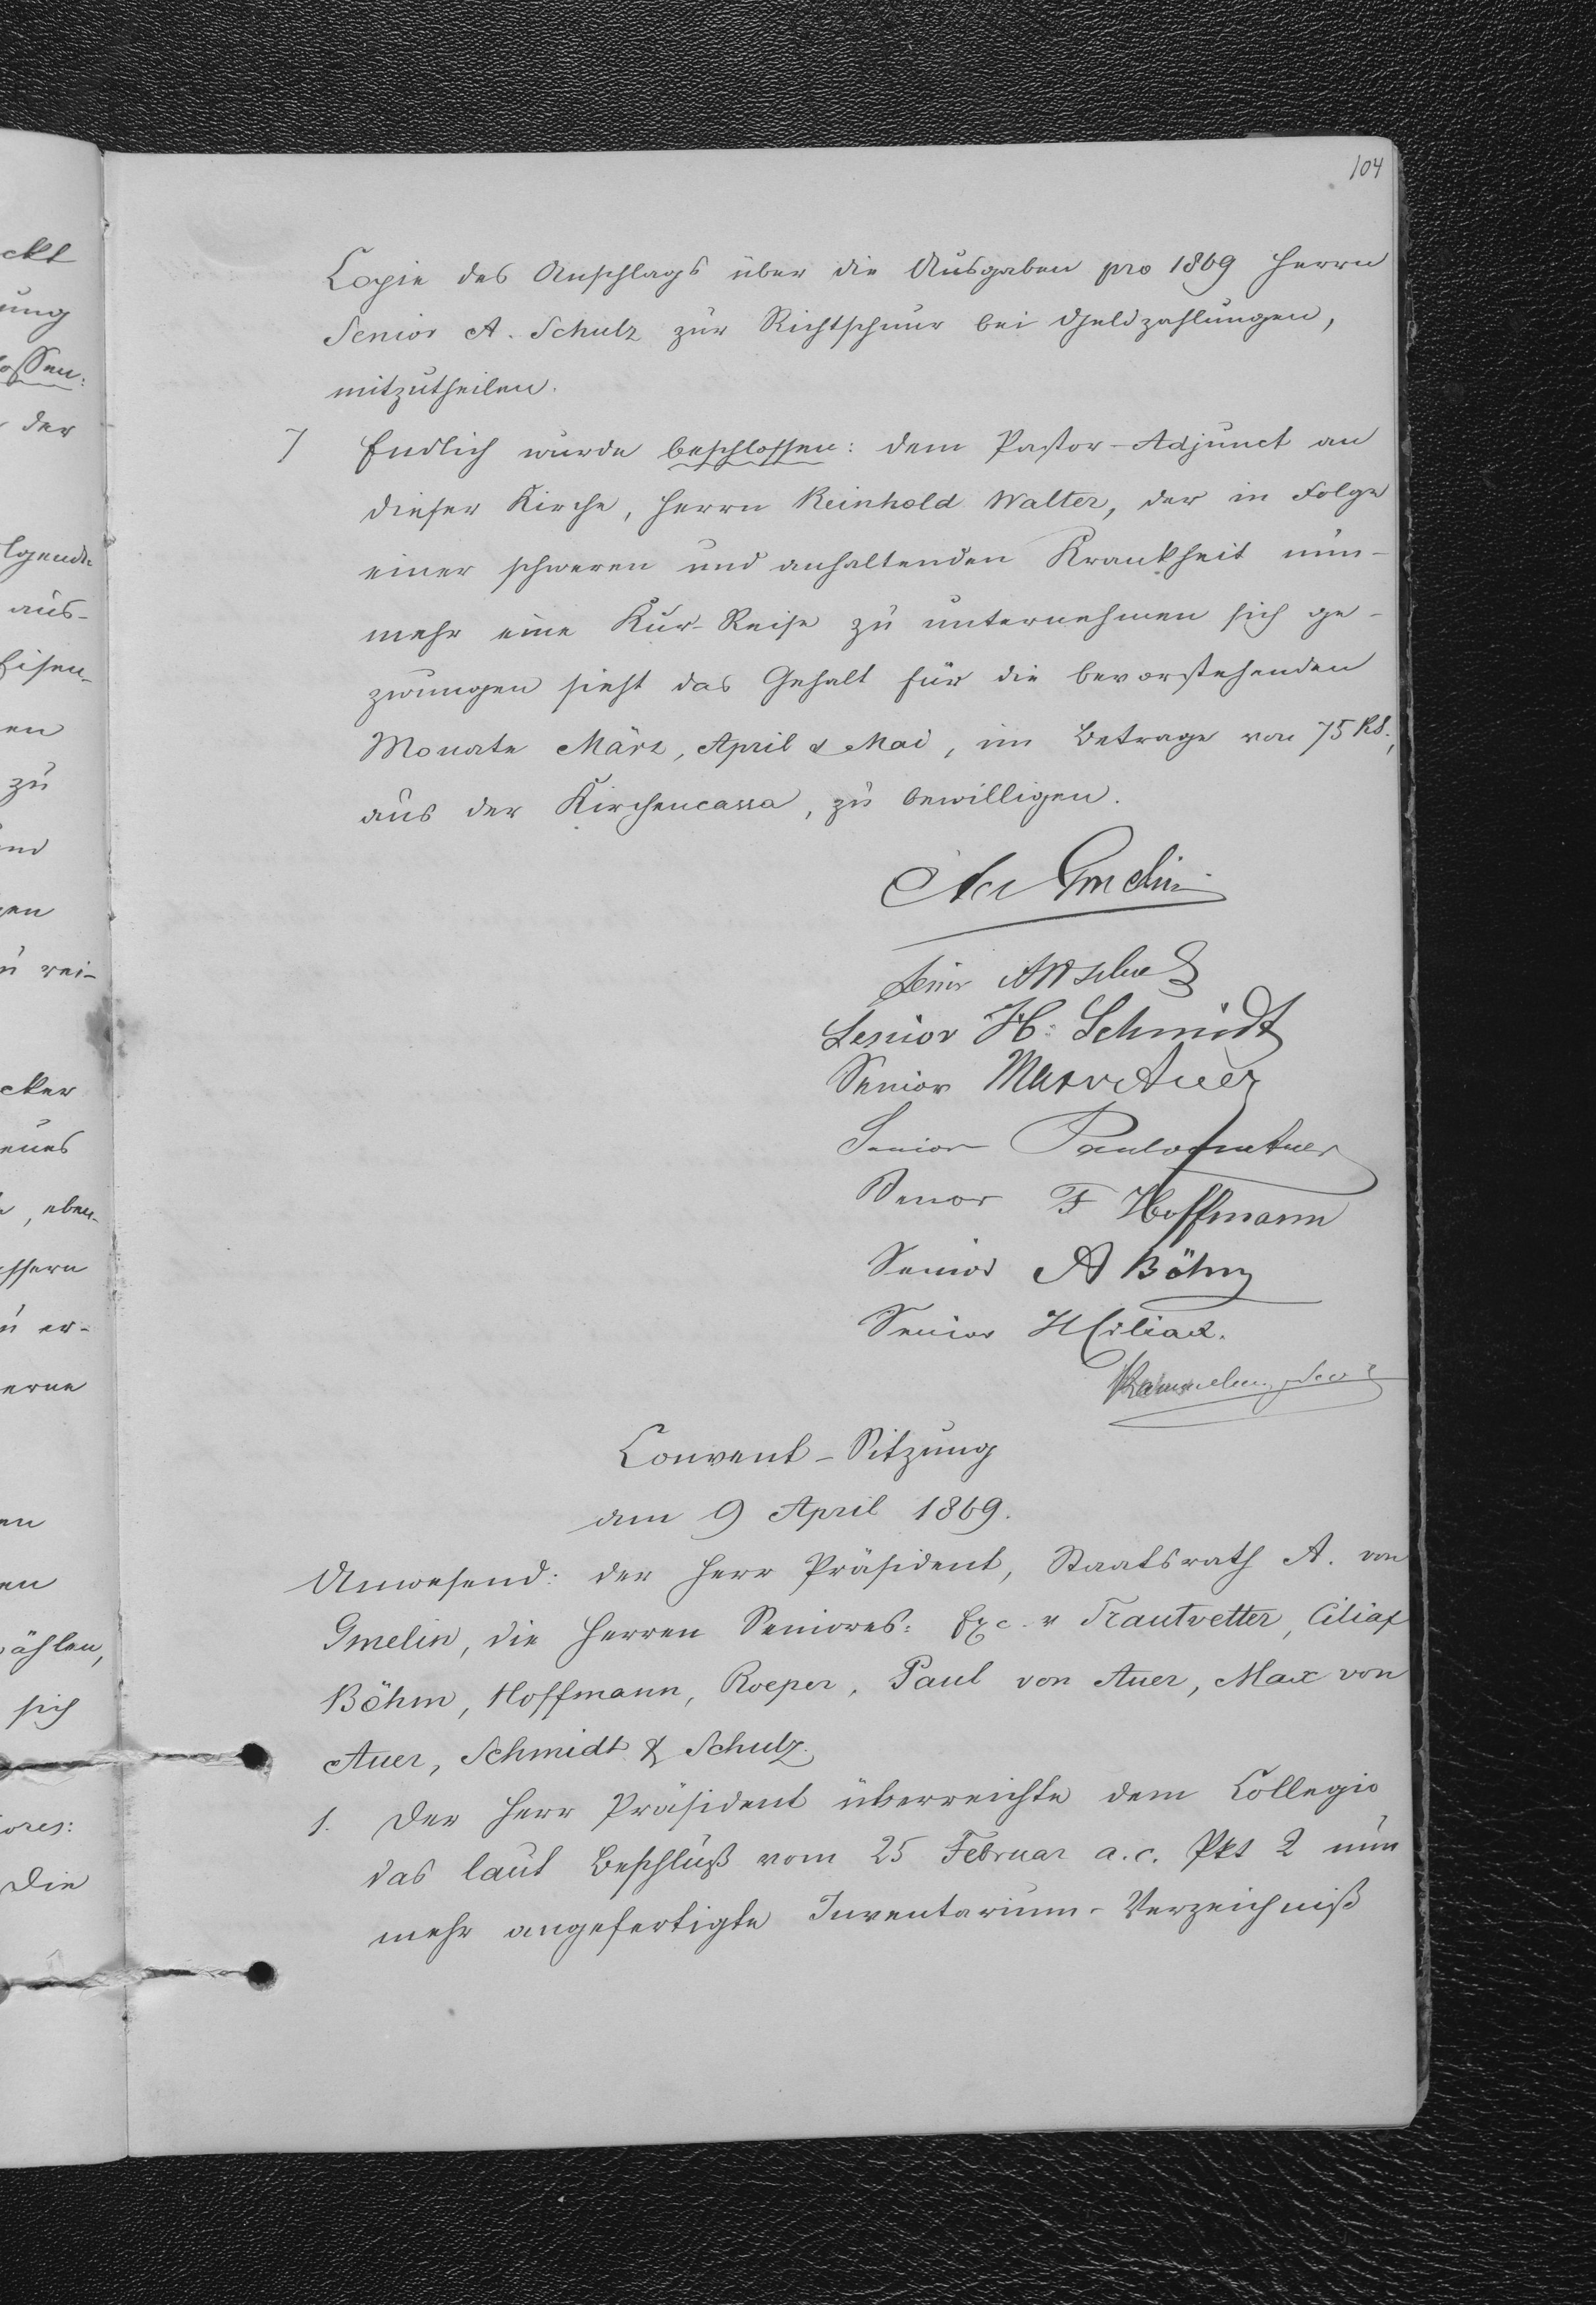 104
Copie des Anschlags über die Ausgaben pro 1869 Herrn
Senior A. Schulz zur Richtschnur bei Geldzahlungen,
mitzutheilen.
7 Endlich wurde beschlossen: dem Pastor-Adjunct an
dieser Kirche, Herrn Reinhold Walter, der in Folge
einer schweren und anhaltenden Krankheit nun-
mehr eine Kur-Reise zu unternehmen sich ge-
zwungen sieht das Gehalt für die bevorstehenden
Monate März, April & Mai, im Betrage von 75 Rs.,
aus der Kirchencassa, zu bewilligen.
Gmelin
Senior
Senior H. Schmidt
Senior Max v Auer
Senior Paul von Auer
Senior F Hoffmann
Senior A Böhm
Senior H Ciliax.
Convent-Sitzung
am 9 April 1869.
Anwesend: der Herr Präsident, Staatsrath A. von
Gmelin, die Herren Seniores: Exc. v Trautvetter, Ciliax
Böhm, Hoffmann, Roeper, Paul von Auer, Max von
Auer, Schmidt & Schulz.
1. Der Herr Präsident überreichte dem Collegio
das laut Beschluß vom 25 Februar a.c. Pkt 2 nun
mehr angefertigte Inventarium-Verzeichniß